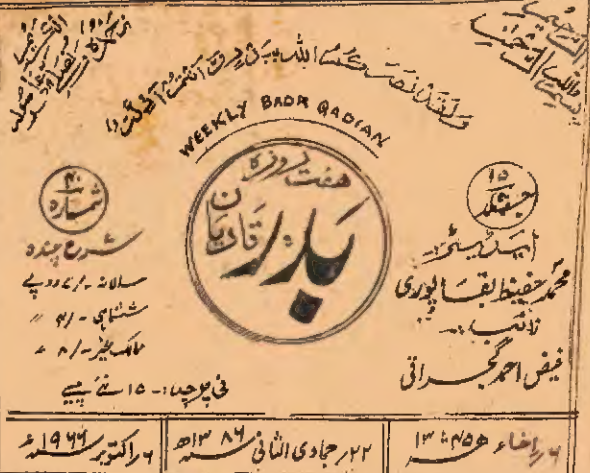 بسم اللہ الرحمٰن الرحیم
ولقد نصرکم اللہ ببدر وانتم اذلة
WEEKLY BADR QADIAN
ہفت روزہ
بدر
قادیان
جلد
۱۵
ایڈیٹر:-
محمد حفیظ بقاپوری
نائب:-
فیض احمد گجراتی
شمارہ
۴۰
شرح چندہ
سالانہ -/۷ روپے
ششماہی -/۴ "
ممالک غیر -/۸ "
فی پرچہ:- ۱۵ نئے پیسے
۶ اخاء ۱۳۴۵ھش
۲۲ جمادی الثانی ۱۳۸۶ھ
۶ اکتوبر ۱۹۶۶ء